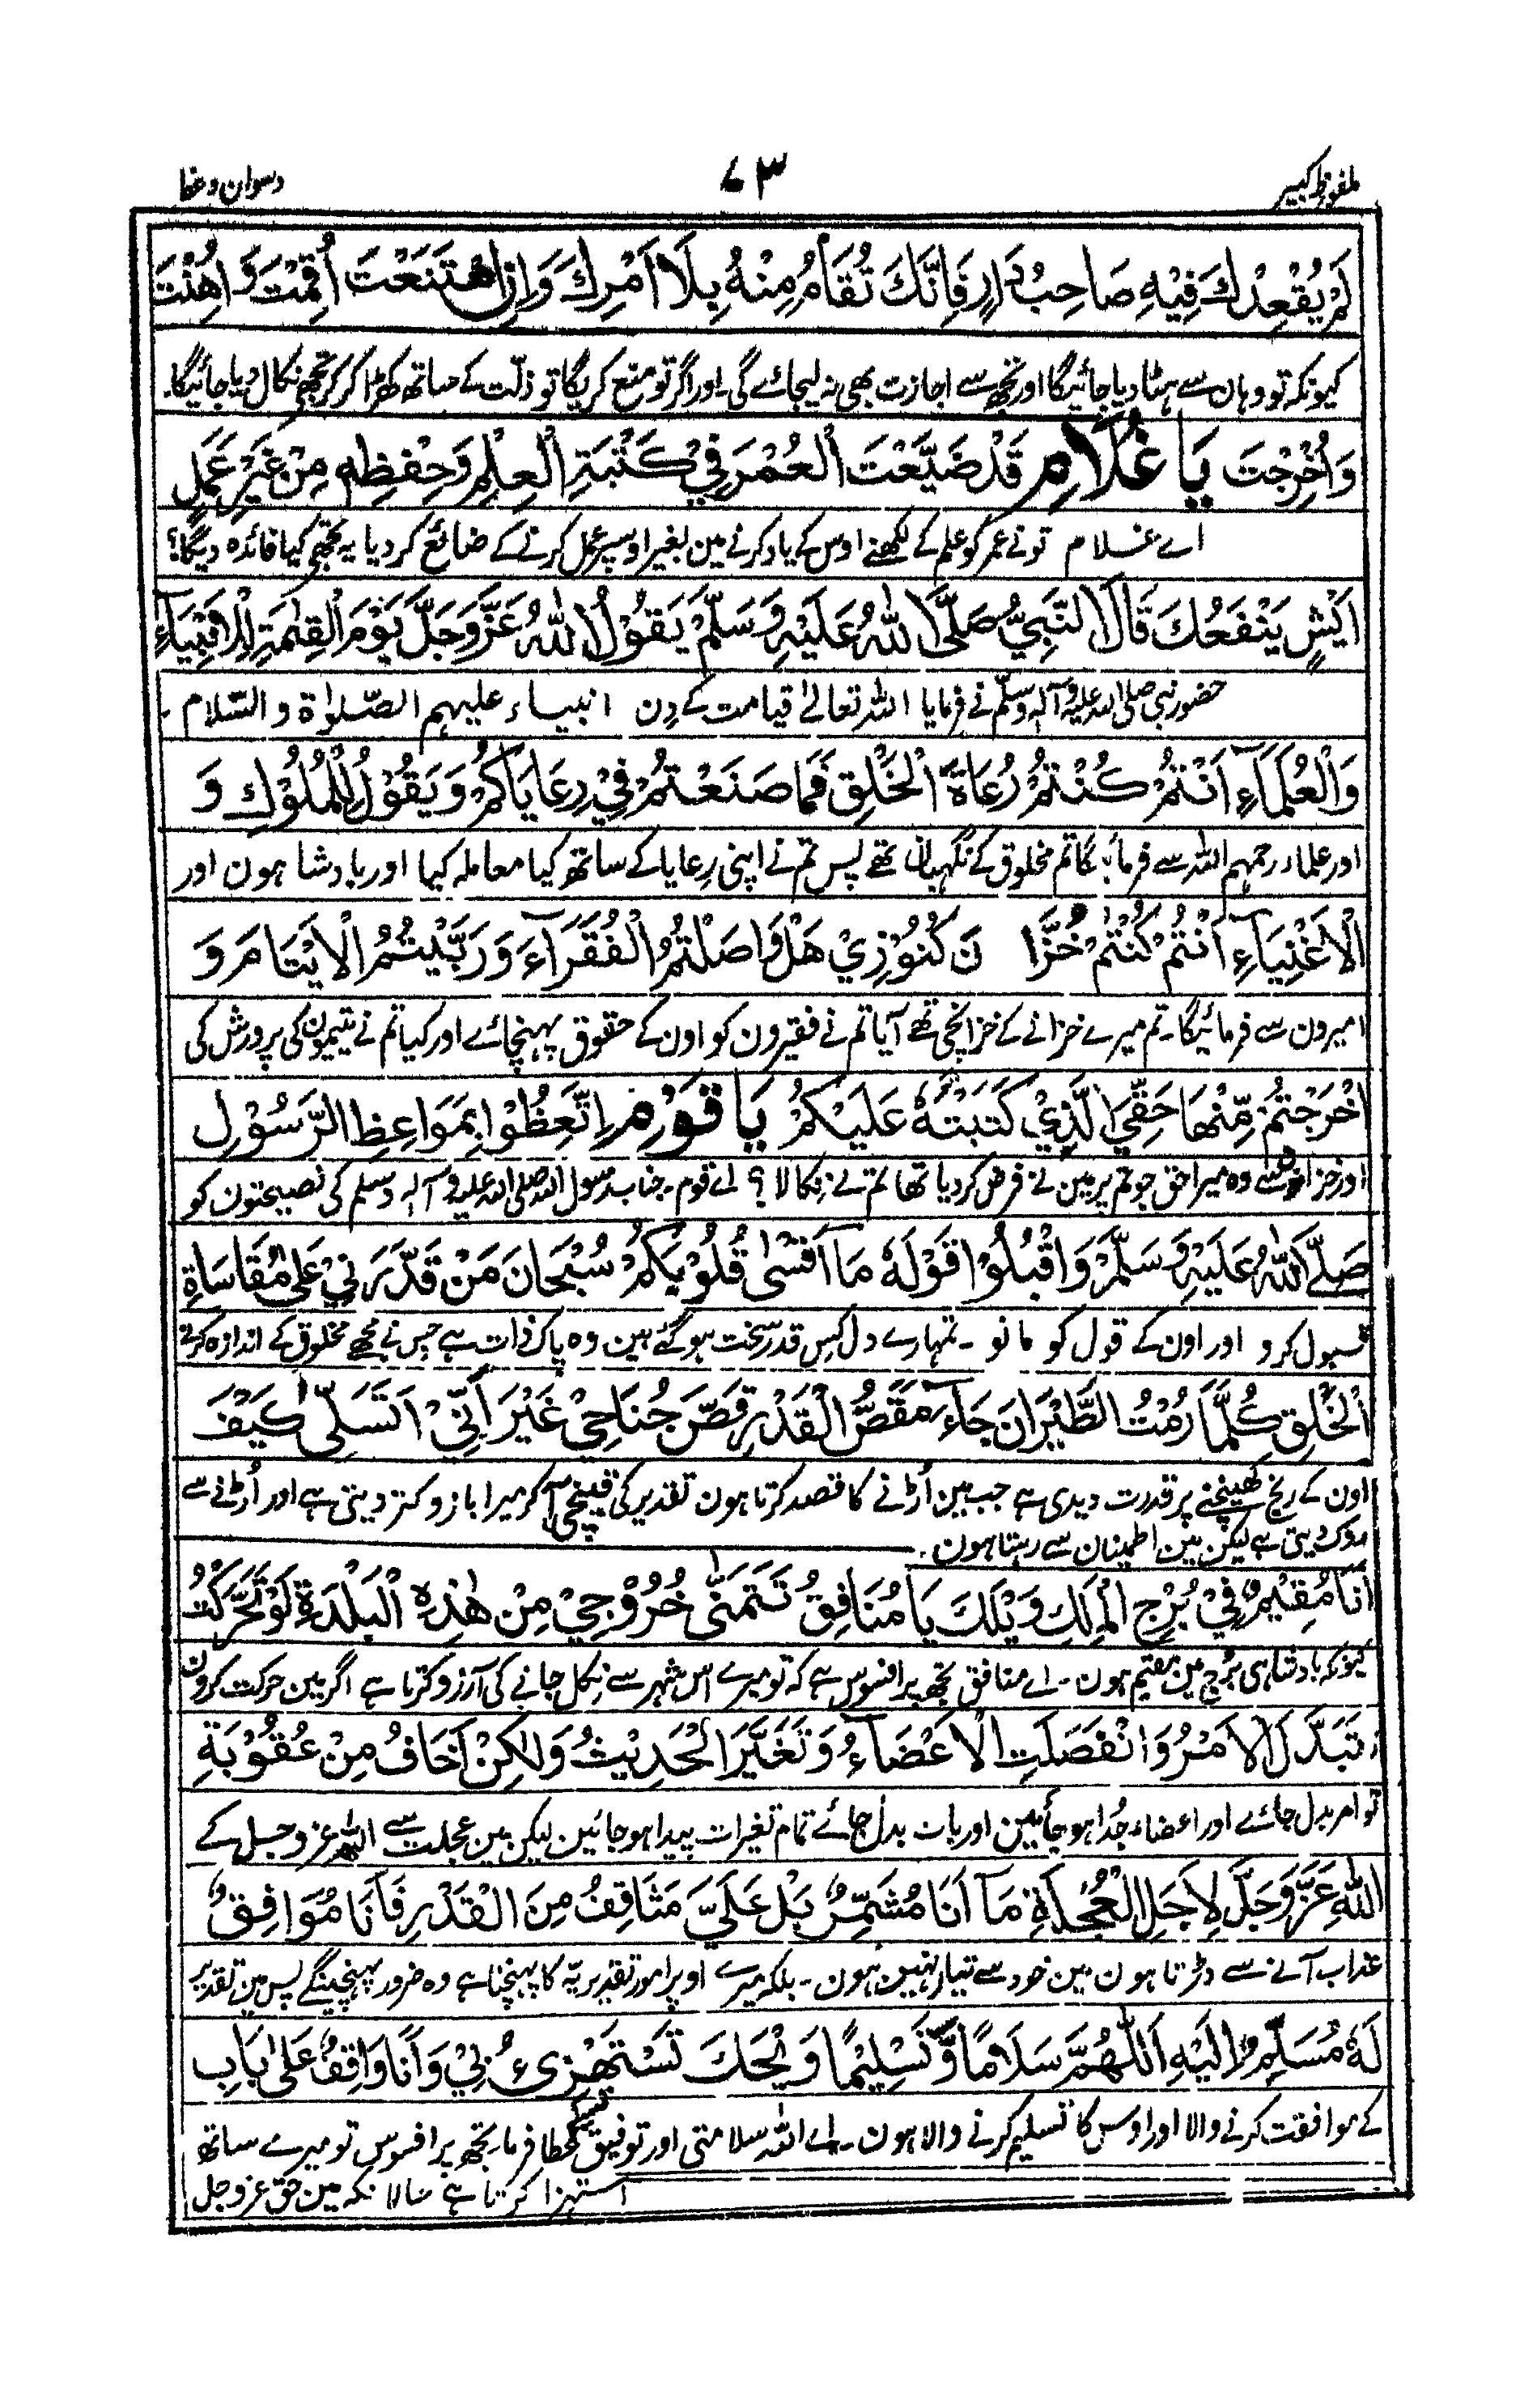 ملفوظ کبیر
۷۳
دسوان وعظ
لَمْ يُقْعِدْكَ فِيْهِ صَاحِبُ دَارٍ فَاِنَّكَ تُقَامُ مِنْهُ بِلَا اَمْرِكَ وَاِنِ امْتَنَعْتَ اُقِمْتَ وَاُهِنْتَ
کیونکہ تو وہان سے ہٹا دیا جائیگا اور تجھ سے اجازت بھی نہ لیجائے گی۔ اور اگر تو منع کریگا تو ذلّت کے ساتھ کھڑا کر کر تجھے نکال دیا جائیگا۔
وَاُخْرِجْتَ يَا غُلَامِ قَدْ ضَيَّعْتَ الْعُمْرَ فِيْ كَتْبَةِ الْعِلْمِ وَحِفْظِهٖ مِنْ غَيْرِ عَمَلٍ
اے غلام تو نے عمر کو علم کے لکھنے اوس کے یاد کرنے مین بغیر اوسپر عمل کرنے کے ضائع کر دیا یہ تجھے کیا فائدہ دیگا؟
اَيْشٍ يَنْفَعُكَ قَالَ النَّبِيُّ صَلَّى اللهُ عَلَيْهِ وَسَلَّمَ يَقُوْلُ اللهُ عَزَّوَجَلَّ يَوْمَ الْقِيٰمَةِ لِلْاَنْبِيَآءِ
حضور نبی صلی اللہ علیہ وآلہ وسلّم نے فرمایا اللہ تعالےٰ قیامت کے دِن انبیاء علیہم الصّلوٰۃ والسّلام۔
وَالْعُلَمَآءِ اَنْتُمْ كُنْتُمْ رُعَاةَ الْخَلْقِ فَمَا صَنَعْتُمْ فِيْ رِعَايَاكُمْ وَيَقُوْلُ لِلْمُلُوْكِ وَ
اور علماء رحمہم اللہ سے فرمائیگا تم مخلوق کے نگہبان تھے پس تم نے اپنی رِعایا کے ساتھ کیا معاملہ کیا اور بادشاہون اور
الْاَغْنِيَآءِ اَنْتُمْ كُنْتُمْ خُزَّانَ كُنُوْزِيْ هَلْ وَاصَلْتُمُ الْفُقَرَآءَ وَرَبَّيْتُمُ الْاَيْتَامَ وَ
امیرون سے فرمائیگا۔ تم میرے خزانے کے خزانچی تھے آیا تم نے فقیرون کو اون کے حقوق پہنچائے اور کیا تم نے یتیمون کی پرورش کی
اَخْرَجْتُمْ مِّنْهَا حَقِّيَ الَّذِيْ كَتَبْتُهٗ عَلَيْكُمْ يَا قَوْمِ اِتَّعِظُوْا بِمَوَاعِظِ الرَّسُوْلِ
اور خزانون سے وہ میرا حق جو تم پر مین نے فرض کر دیا تھا تم نے نِکالا؟ اے قوم۔ جناب رسول اللہ صلی اللہ علیہ وآلہ وسلم کی نصیحتون کو
صَلَّى اللهُ عَلَيْهِ وَسَلَّمَ وَاقْبَلُوْا قَوْلَهٗ مَا اَقْسٰى قُلُوْبَكُمْ سُبْحَانَ مَنْ قَدَّرَنِيْ عَلٰى مُقَاسَاةِ
قبول کرو اور اون کے قول کو مانو۔ تمہارے دل کِس قدر سخت ہو گئے ہین وہ پاک ذات ہے جس نے مجھے مخلوق کے اندازہ کرنے
الْخَلْقِ كُلَّمَا رُمْتُ الطَّيْرَانَ جَآءَ مِقَصُّ الْقَدْرِ قَصَّ جُنَاحِيْ غَيْرَ اَنِّيْ اَتَسَلّٰى كَيْفَ
اون کے رنج کھینچنے پر قدرت دیدی ہے جب مین اُڑنے کا قصد کرتا ہون تقدیر کی قینچی آ کر میرا بازو کتر دیتی ہے اور اُڑنے سے
روک دیتی ہے لیکن مین اطمینان سے رہتا ہون۔
اَنَا مُقِيْمٌ فِيْ بُرْجِ الْمَلِكِ وَيْلَكَ يَا مُنَافِقُ تَتَمَنّٰى خُرُوْجِيْ مِنْ هٰذِهِ الْبَلْدَةِ لَوْ تَحَرَّكْتُ
کیونکہ بادشاہی بُرج مین مقیم ہون۔ اے منافق تجھ پر افسوس ہے کہ تو میرے اس شہر سے نِکل جانے کی آرزو کرتا ہے اگر مین حرکت کرون
تَبَدَّلَ الْاَمْرُ وَانْفَصَلَتِ الْاَعْضَآءُ وَتَغَيَّرَ الْحَدِيْثُ وَلٰكِنْ اَخَافُ مِنْ عُقُوْبَةِ
تو امر بدل جائے اور اعضاء جُدا ہو جائین اور بات بدل جائے تمام تغیرات پیدا ہو جائین لیکن مین عجلت سے اللہ عزوجل کے
اللهِ عَزَّوَجَلَّ لِاَجَلِ الْعُجْلَةِ مَآ اَنَا مُشَمِّرٌ بَلْ عَلَيَّ مَثَاقِفُ مِنَ الْقَدْرِ فَاَنَا مُوَافِقٌ
عذاب آنے سے ڈرتا ہون مین خود سے تیار نہین ہون۔ بلکہ میرے اوپر امور تقدیریّہ کا پہنچنا ہے وہ ضرور پہنچینگے پس مین تقدیر
لَهٗ مُسَلِّمٌ اِلَيْهِ اَللّٰهُمَّ سَلَامًا وَّتَسْلِيْمًا وَيْحَكَ تَسْتَهْزِئُ بِيْ وَاَنَا وَاقِفٌ عَلٰى بَابِ
کے موافقت کرنے والا اور اوس کا تسلیم کرنے والا ہون۔ اے اللہ سلامتی اور توفیق تسلیم عطا فرما۔ تجھ پر افسوس تو میرے ساتھ
استہزا کرتا ہے حالانکہ مین حق عزوجل